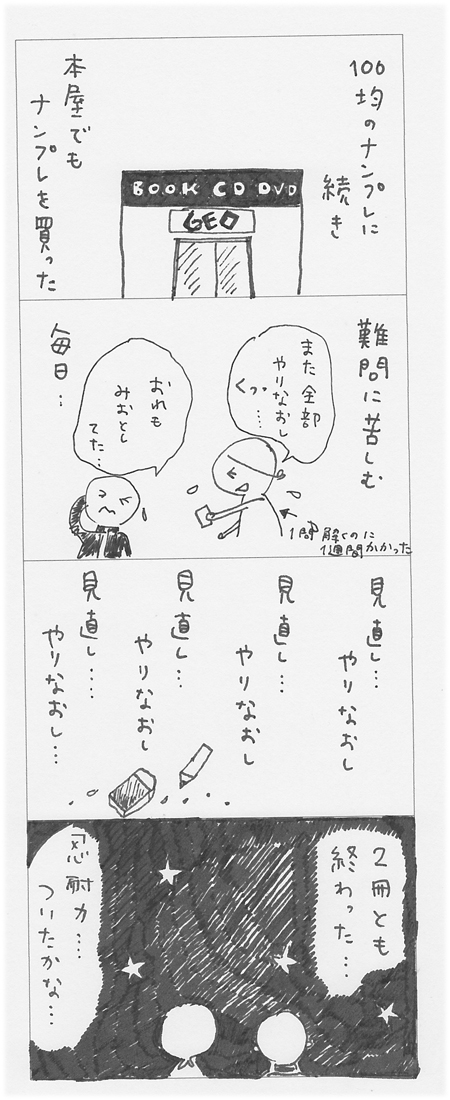 100均のナンプレに
続き
BOOK CD DVD
GEO
本屋でも
ナンプレを買った
難問に苦しむ
また全部
やりなおし
くっ…
1問解くのに
1週間かかった
おれも
みおとし
てた…
毎日…
見直し…
やりなおし
見直し…
やりなおし
見直し…
やりなおし
見直し…
やりなおし…
2冊とも
終わった…
忍耐力…
ついたかな…